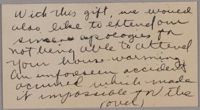 With this gift, we would
also like to extend our
sincere apologies in
not being able to attend
your house-warming.
An unforeseen accident
occurred which made
it impossible on the
(over)